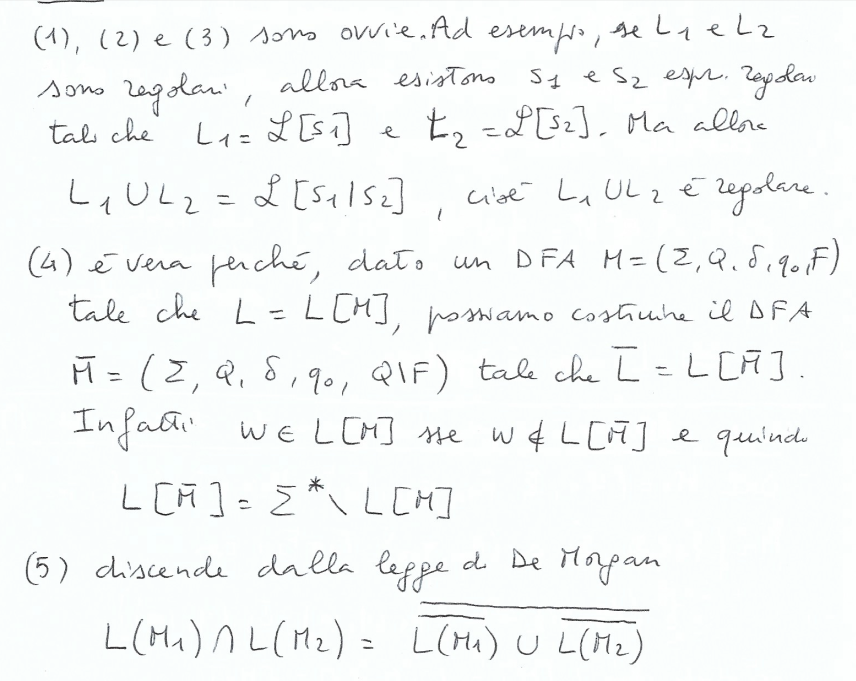 (1), (2) e (3) sono ovvie. Ad esempio, se L₁ e L₂
sono regolari, allora esistono S₁ e S₂ espr. regolari
tali che L₁ = ℒ[S₁] e L₂ = ℒ[S₂]. Ma allora
L₁ ∪ L₂ = ℒ[S₁|S₂], cioè L₁ ∪ L₂ è regolare.
(4) è vera perché, dato un DFA M = (Σ, Q, δ, q₀, F)
tale che L = L[M], possiamo costruire il DFA
M̄ = (Σ, Q, δ, q₀, Q\F) tale che L̄ = L[M̄].
Infatti w ∈ L[M] sse w ∉ L[M̄] e quindi
L[M̄] = Σ* \ L[M]
(5) discende dalla legge di De Morgan
L(M₁) ∩ L(M₂) = \overline{\overline{L(M₁)} ∪ \overline{L(M₂)}}